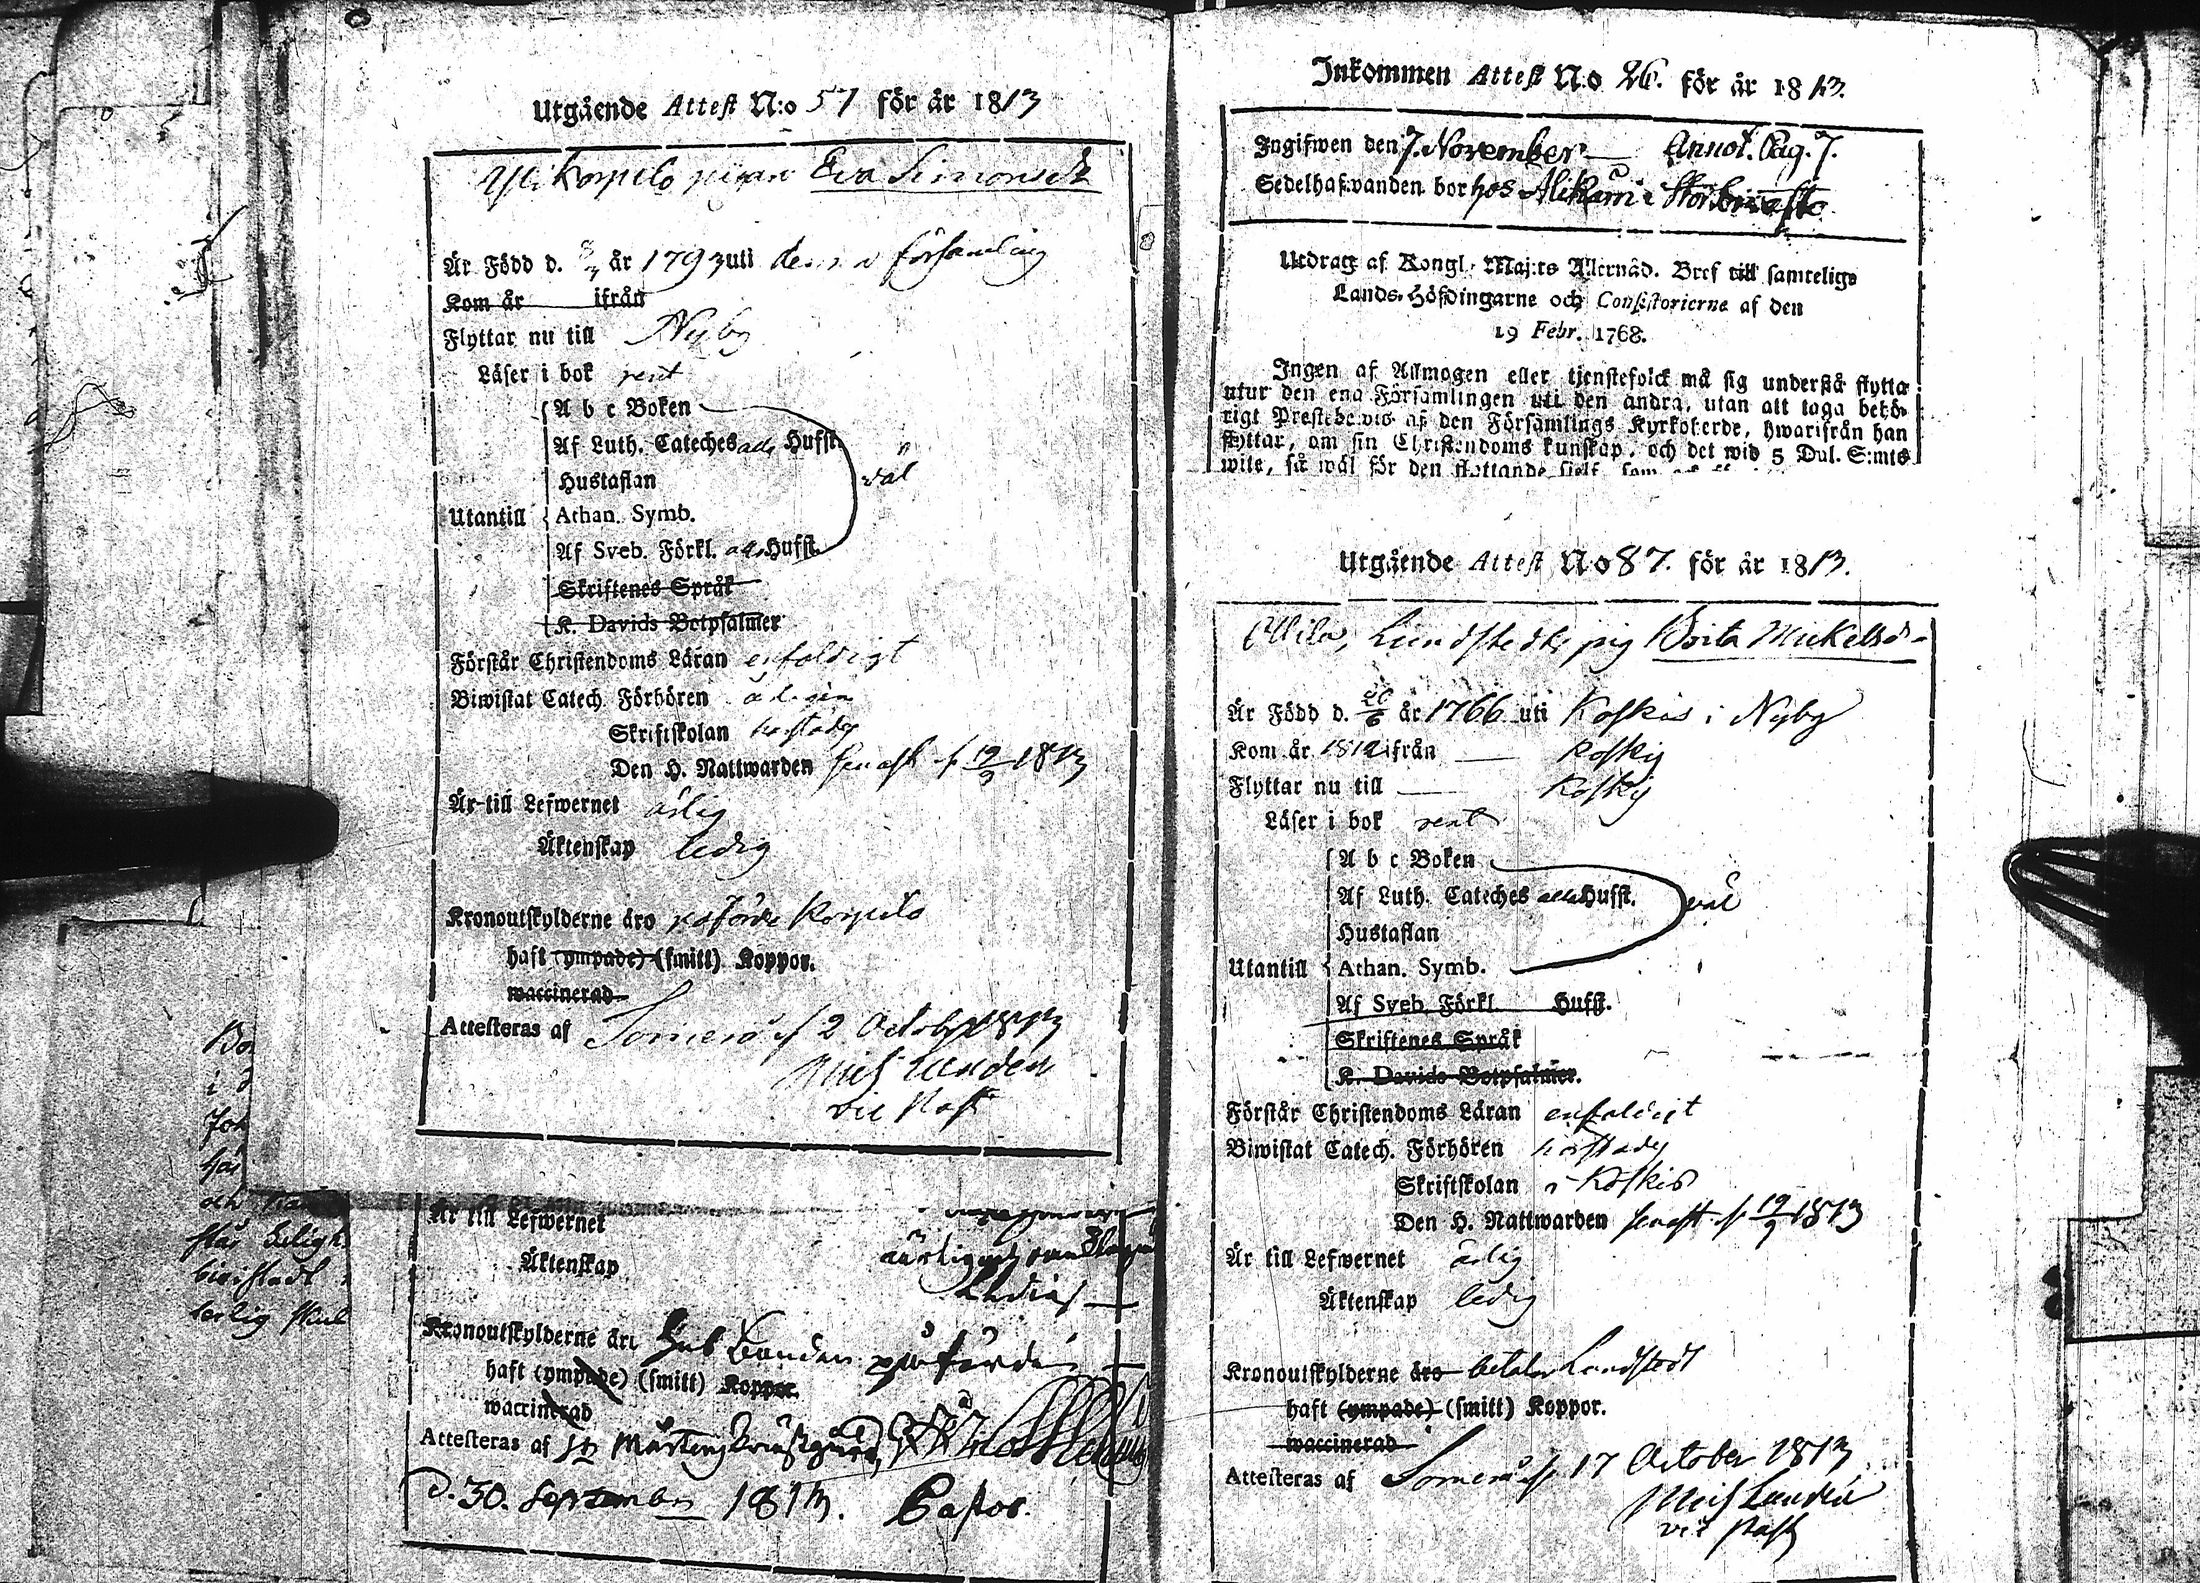 Utgående Attest N:o 51 för år 1813
Yli Korpilo pigan Eva Simonsdr
Är Född d. år 1793 uti denna församling
Kom år ifrån
Flyttar nu till Nyby
Läser i bok rent
A b c Boken
Af Luth. Cateches alla Hufst.
Hustaflan
väl
Utantill Athan. Symb.
Af Sveb. Förkl. alla Hufst.
Skriftenes Språk
K. Davids Botpsalmer
Förstår Christendoms Läran enfaldigt
Biwistat Catech. Förhören årligen
Skriftskolan härstädes
Den H. Nattwarden senast d. 19/9 1813
Är till Lefwernet ärlig
Äktenskap ledig
Kronoutskylderne äro påförde Korpilo
haft (ympade) (smitt) Koppor.
waccinerad
Attesteras af Somero d 2 October 1813
vic Past
Bo
i
Joh
här
och
står
bivistadt
Är till Lefwernet
Äktenskap
Kronoutskylderne äro påförde
haft (ympade) (smitt) Koppor.
waccinerad
Attesteras af St Mårtens
d. 30. September 1813. Pastor.
Inkommen Attest N:o 26. för år 1813.
Ingifwen den 7. November Annot. Pag. 7.
Sedelhafwanden bor hos
Utdrag af Kongl. Maj:ts Allernåd. Bref till samtelige
Lands-Höfdingarne och Consistorierne af den
19 Febr. 1768.
Ingen af Allmogen eller tjenstefolck må sig understå flytta
utur den ena Församlingen uti den andra, utan att taga behö-
rigt Prestebevis af den Församlings Kyrkoherde, hwarifrån han
flyttar, om sin Christendoms kunskap, och det wid 5 Dal. S:mts
wite, så wäl för den flyttande sielf, som
Utgående Attest No 87. för år 1813.
Lundstedts pig Brita Mickelsdr
Är Född d. 26/6 år 1766 uti Koskis i Nyby
Kom år 1812 ifrån Koskis
Flyttar nu till Koskis
Läser i bok rent
A b c Boken
Af Luth. Cateches alla Hufst.
väl
Hustaflan
Utantill Athan. Symb.
Af Sveb. Förkl. Hufst.
Skriftenes Språk
K. Davids Botpsalmer.
Förstår Christendoms Läran enfaldigt
Biwistat Catech. Förhören härstädes
Skriftskolan i Koskis
Den H. Nattwarden senast d. 19/9 1813
Är till Lefwernet ärlig
Äktenskap ledig
Kronoutskylderne äro betalar Lundstedt
haft (ympade) (smitt) Koppor.
waccinerad
Attesteras af Somero d 17 October 1813
vic Past